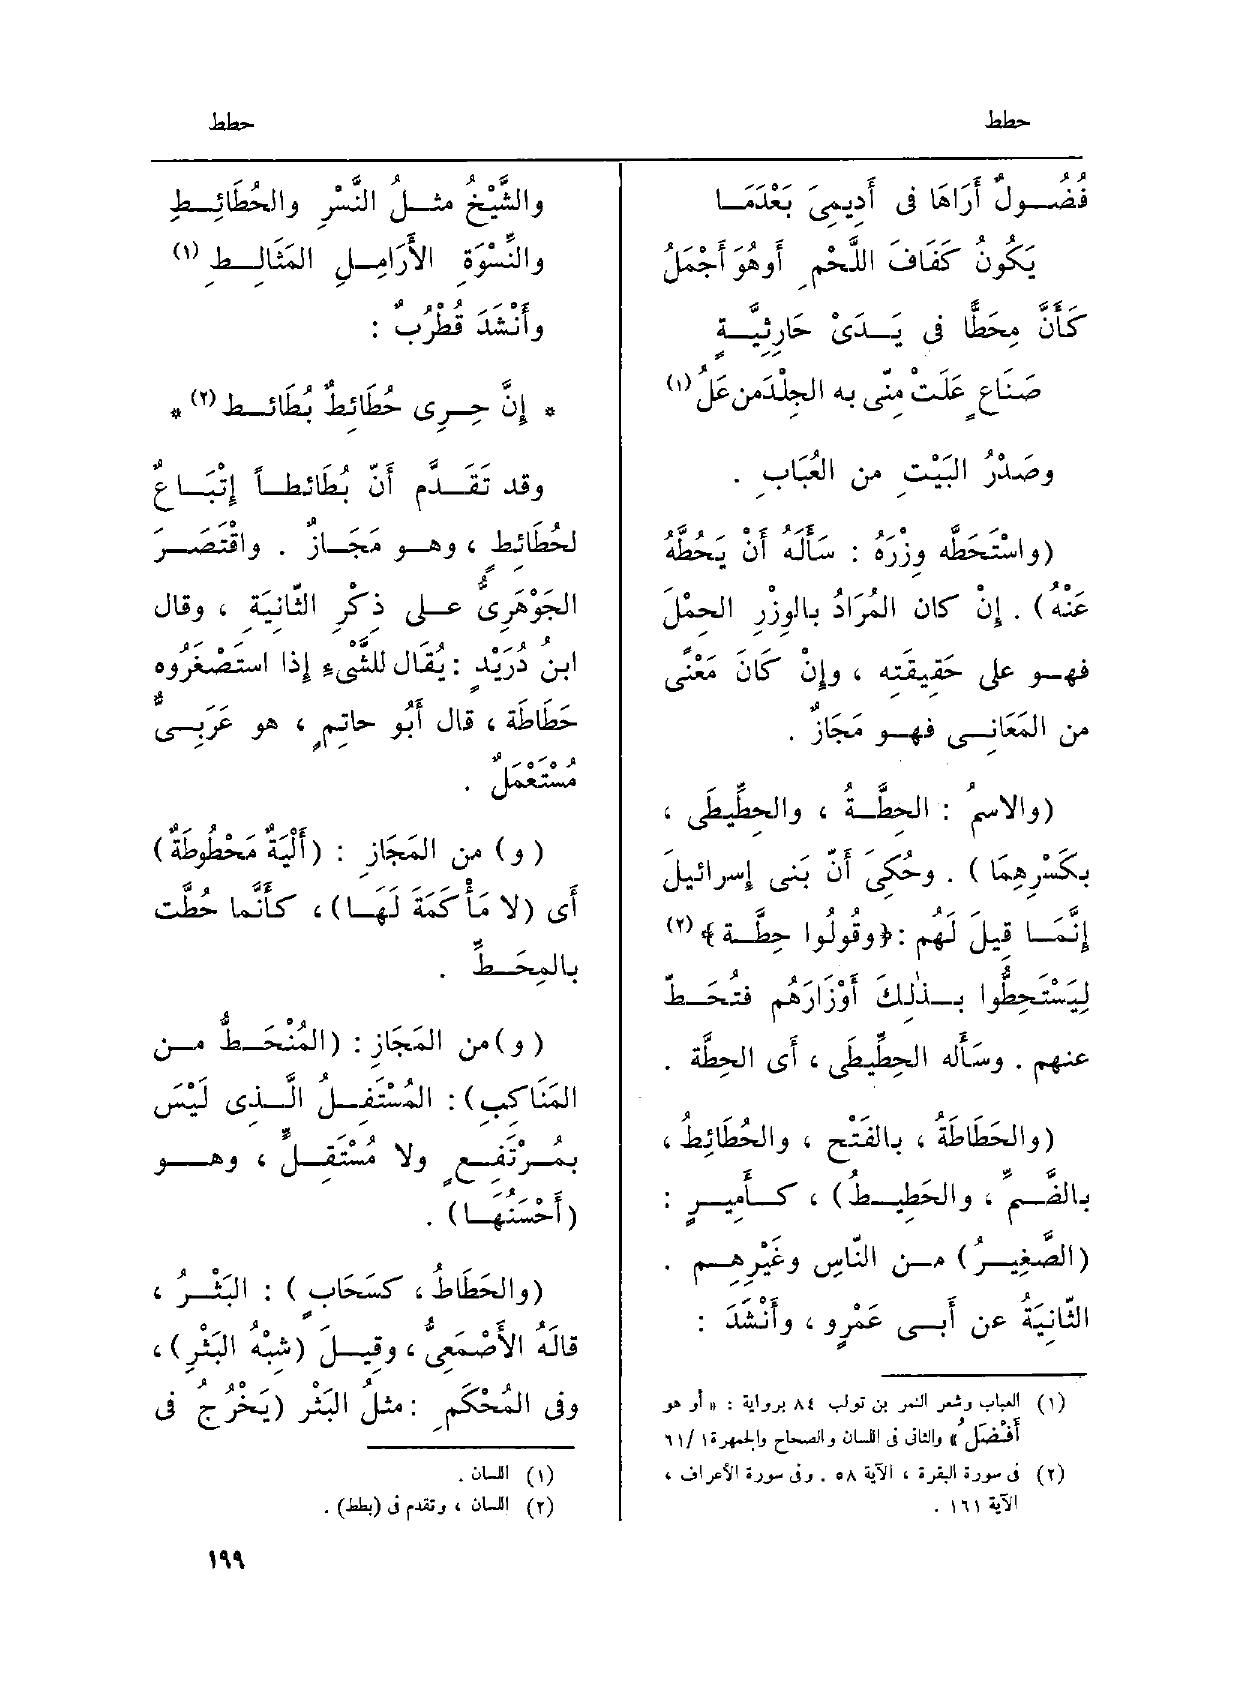 حطط
حطط
فُضُولٌ أَرَاهَا فى أَدِيمِىَ بَعْدَمَا
يَكُونُ كَفَافَ اللَّحْمِ أَوهُوَ أَجْمَلُ
كَأَنَّ مِحَطًّا فى يَدَىْ حَارِثِيَّةٍ
صَنَاعٍ عَلَتْ مِنِّى به الجِلْدَ من عَلُ (١)
وصَدْرُ البَيْتِ من العُبَابِ .
(واسْتَحَطَّه وِزْرَهُ : سَأَلَه أَنْ يَحُطَّهُ
عَنْهُ) . إِنْ كان المُرَادُ بالوِزْرِ الحِمْلَ
فهو على حَقِيقَتِه ، وإِنْ كَانَ مَعْنًى
من المَعَانِى فهو مَجَازٌ .
(والاسمُ : الحِطَّةُ ، والحِطِّيطَى ،
بكَسْرِهِمَا ) . وحُكِىَ أَنّ بَنى إسرائيلَ
إِنَّمَا قِيلَ لَهُم : ﴿وقُولُوا حِطَّة﴾ (٢)
لِيَسْتَحِطُّوا بِذٰلِكَ أَوْزَارَهُم فتُحَطّ
عنهم . وسَأَله الحِطِّيطَى ، أَى الحِطَّة .
(والحَطَاطَةُ ، بالفَتْح ، والحُطَائِطُ ،
بالضَّمِّ ، والحَطِيطُ) ، كأَمِيرٍ :
(الصَّغِيرُ) من النّاسِ وغَيْرِهِم .
الثّانِيَةُ عن أَبى عَمْرٍو ، وأَنْشَدَ :
(١) العباب وشعر النمر بن تولب ٨٤ برواية : « أو هو
أَفْضَلُ » والثانى فى اللسان والصحاح والجمهرة ١/ ٦١
(٢) فى سورة البقرة ، الآية ٥٨ . وفى سورة الأعراف ،
الآية ١٦١ .
والشَّيْخُ مثلُ النَّسْرِ والحُطَائِطِ
والنِّسْوَةِ الأَرَامِلِ المَثَالِطِ (١)
وأَنْشَدَ قُطْرُبٌ :
* إِنَّ حِرِى حُطَائِطٌ بُطَائط (٢) *
وقد تَقَدَّم أَنّ بُطَائطاً إِتْبَاعٌ
لحُطَائِطٍ ، وهو مَجَازٌ . واقْتَصَرَ
الجَوْهَرِىُّ على ذِكْرِ الثّانِيَةِ ، وقال
ابنُ دُرَيْدٍ : يُقَال للشَّىءِ إِذا استَصْغَرُوه
حَطَاطَة ، قال أَبُو حاتِمٍ ، هو عَرَبِىٌّ
مُسْتَعْمَلٌ .
( و) من المَجَازِ : (أَلْيَةٌ مَحْطُوطَةٌ)
أَى (لا مَأْكَمَةَ لَهَا) ، كأَنَّما حُطَّت
بالمِحَطِّ .
( و)من المَجَازِ : (المُنْحَطُّ من
المَنَاكِبِ) : المُسْتَفِلُ الَّذى لَيْسَ
بمُرْتَفِعٍ ولا مُسْتَقِلٍّ ، وهو
(أَحْسَنُهَا) .
(والحَطَاطُ ، كسَحَابٍ ) : البَثْرُ ،
قالَهُ الأَصْمَعِىُّ ، وقِيلَ (شِبْهُ البَثْرِ) ،
وفى المُحْكَمِ : مثلُ البَثْر (يَخْرُجُ فى
(١) اللسان .
(٢) اللسان ، وتقدم فى (بطط) .
١٩٩